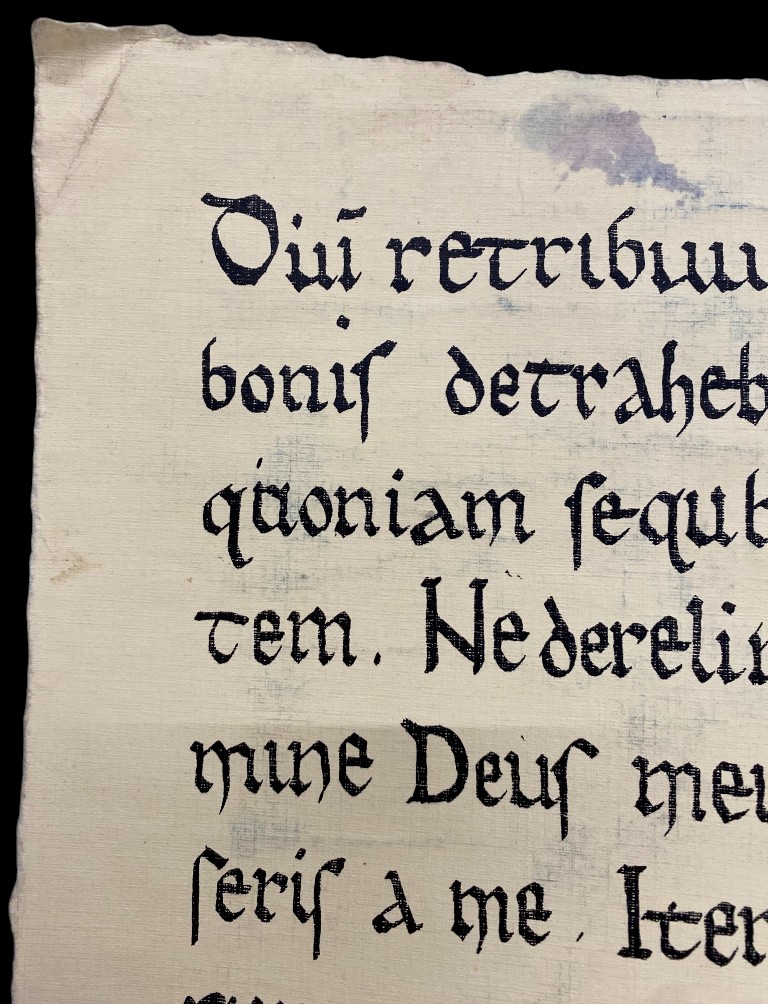 Qui retribuu
boniſ detraheb
quoniam ſequb
tem. Ne dereli
mine Deuſ meu
ſeriſ a me. Iter